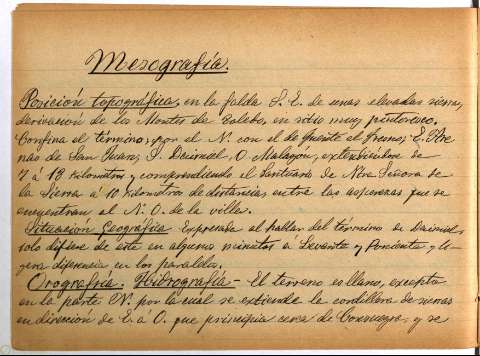 Mesografía.
Posición topográfica, en la falda S. E. de unas elevadas sierras,
derivación de los Montes de Toledo, en sitio muy pintoresco.
Confina el término, por el N. con el de Fuente el Fresno; E. Are-
nas de San Juan; S. Daimiel, O. Malagón, extendiéndose de
7 á 13 kilometros y comprendiendo el Santuario de Ntra Señora de
la Sierra á 10 kilometros de distancia, entre las asperezas que se
encuentran al N. O. de la villa.
Situación Geografía expresada al hablar del término de Daimiel
solo difiere de este en algunos minutos á Levante y Poniente y li-
gera diferencia en los paralelos.
Orografía. Hidrografía.- El terreno es llano, excepto
en la parte N. por la cual se extiende la cordillera de sierras
en dirección de E. á O. que principia cerca de Consuegra, y se